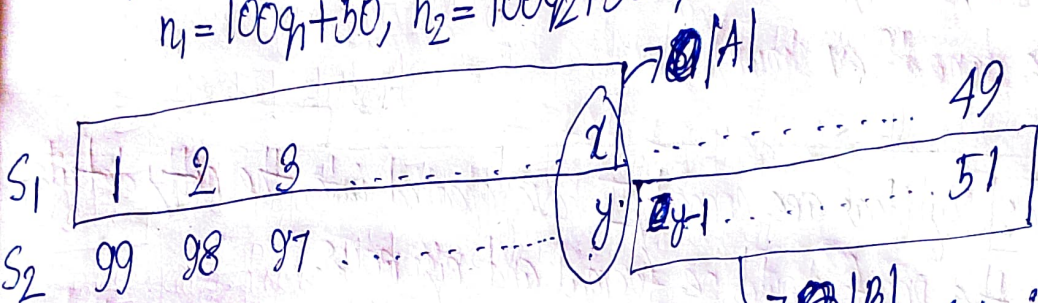 n₁ = 100q₁+50, n₂ = 100q₂+
→ |A|
S₁ 1 2 3 ......... x ......... 49
S₂ 99 98 97 ......... y y-1 ......... 51
→ |B|